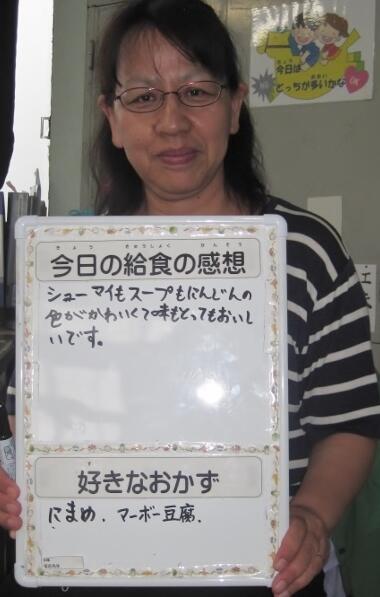 今日は
どっちが多いかな
きょう きゅうしょく かんそう
今日の給食の感想
シューマイもスープもにんじんの
色がかわいくて味もとってもおいし
いです。
す
好きなおかず
にまめ、マーボー豆腐、